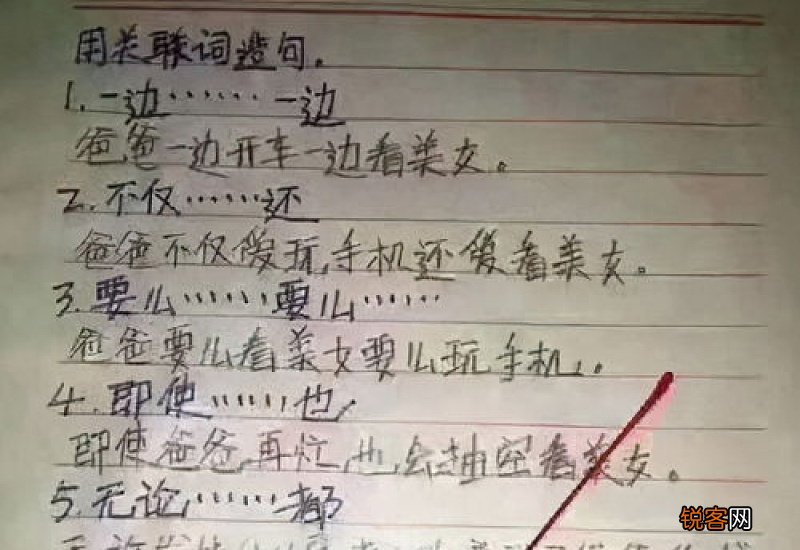 用关联词造句。
1.一边……一边
爸爸一边开车一边看美女。
2.不仅……还
爸爸不仅爱玩手机还爱看美女。
3.要么……要么……
爸爸要么看美女要么玩手机。
4.即使……也
即使爸爸再忙也会抽空看美女。
5.无论……都
锐客网